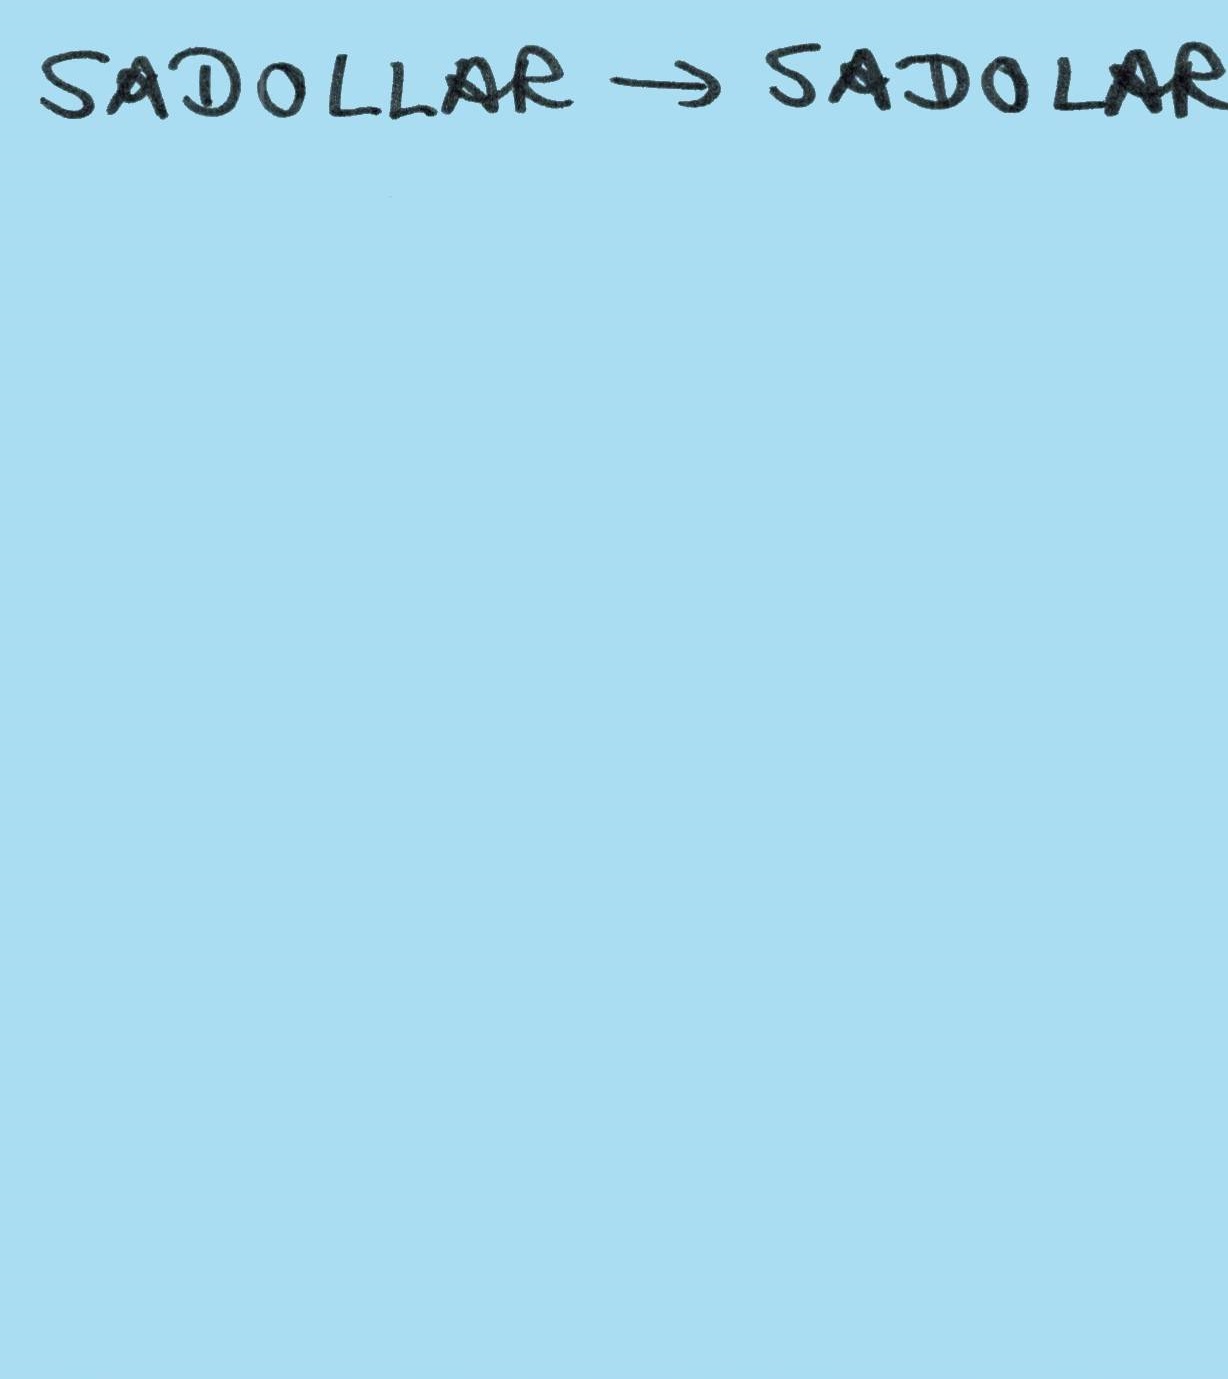 SADOLLAR → SADOLAR